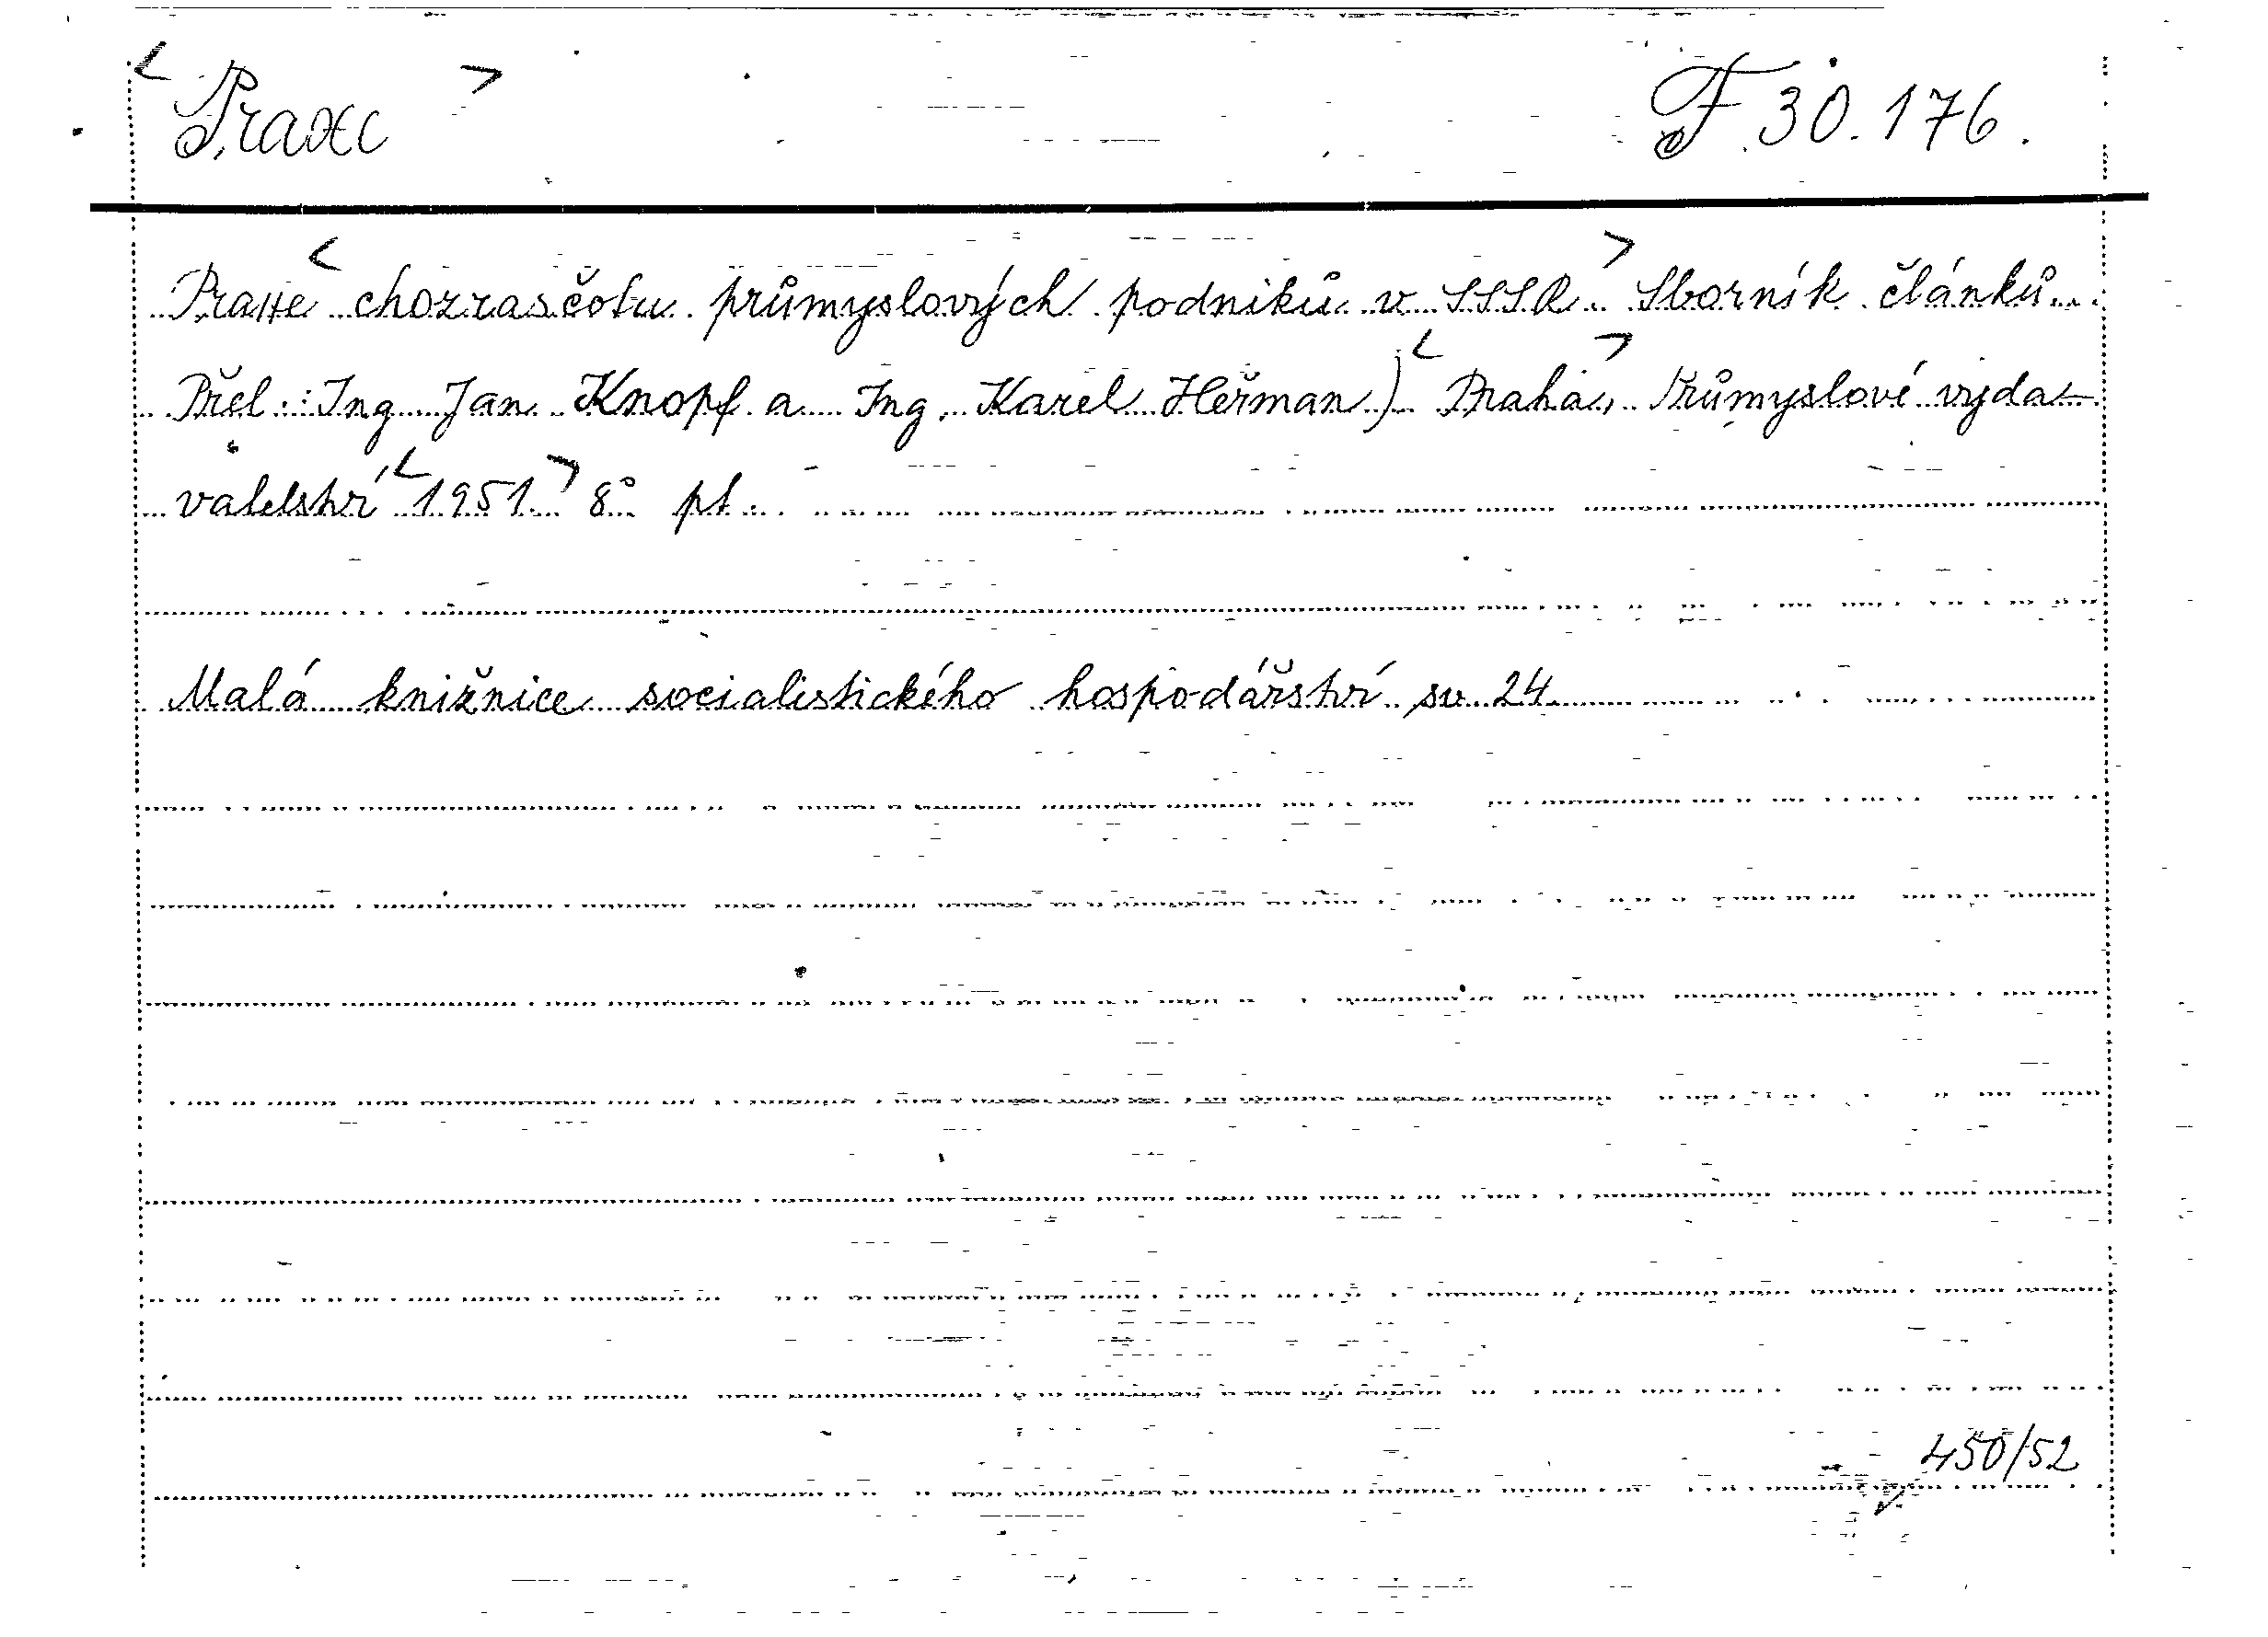 < Praxe > F 30.176.
Praxe < chozrasčotu průmyslových podniků v SSSR. > Sborník článků.
Přel.: Ing. Jan Knopf a Ing. Karel Heřman) < Praha, > Průmyslové vyda-
vatelství < 1951. > 8° pt.
Malá knižnice socialistického hospodářství sv. 24.
450/52